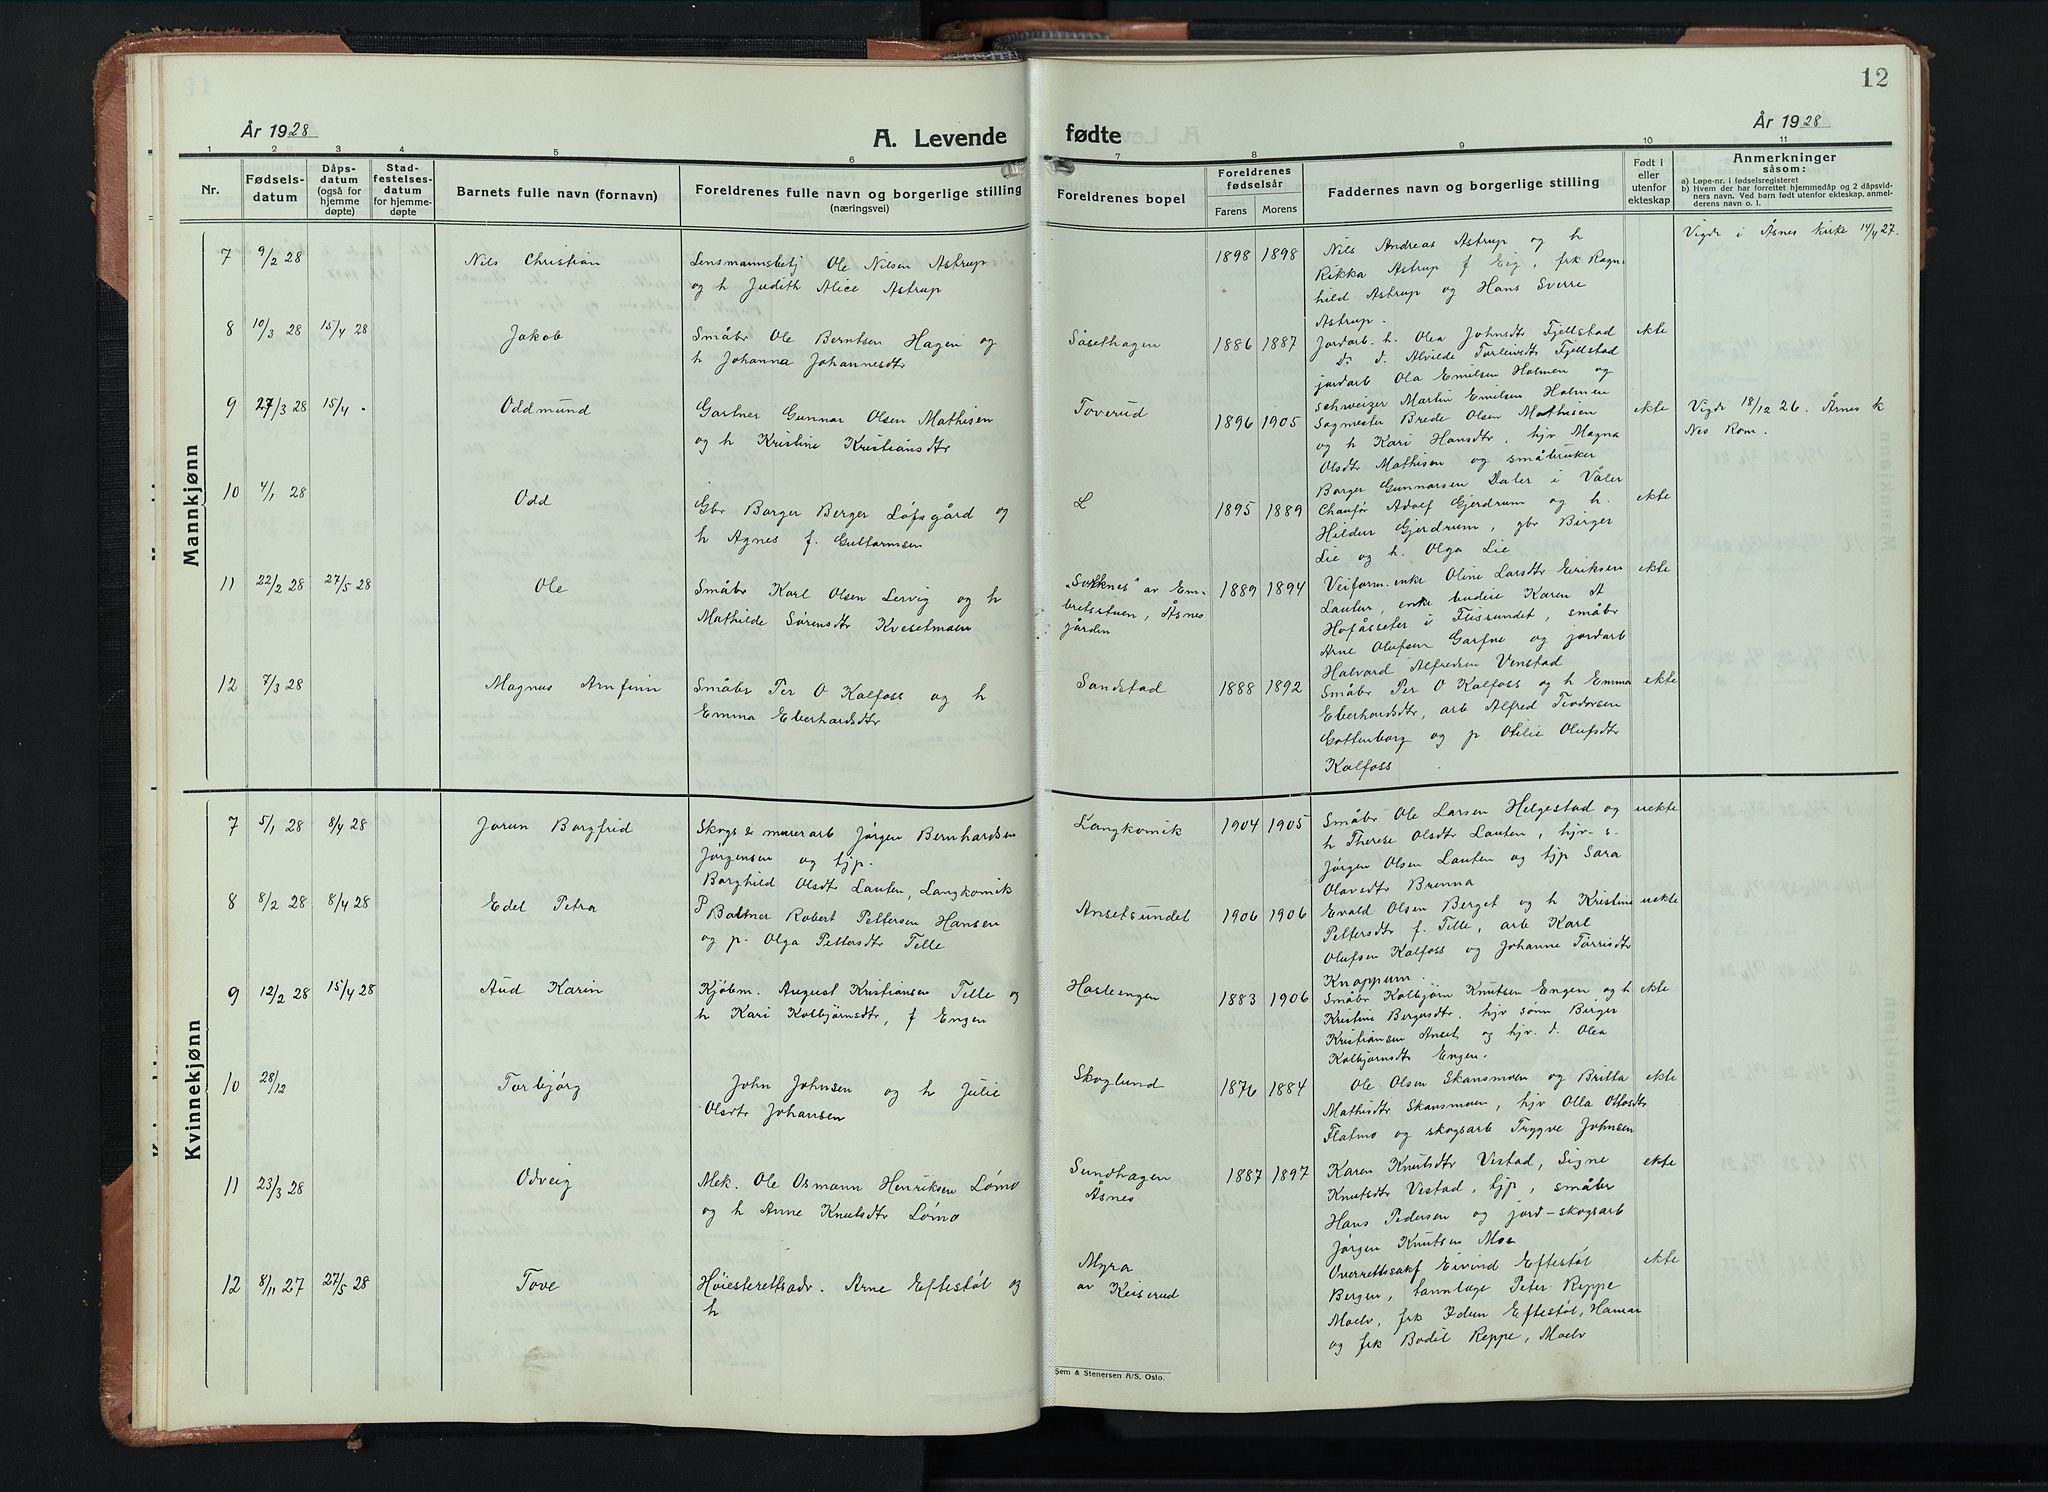 12
År 1928
A. Levende
fødte
År 1928
1 2 3 4 5 6 7 8 9 10 11
Nr.
Fødsels-
datum
Dåps-
datum
(også for
hjemme
døpte)
Stad-
festelses-
datum
for hjemme-
døpte
Barnets fulle navn (fornavn)
Foreldrenes fulle navn og borgerlige stilling
(næringsvei)
Foreldrenes bopel
Foreldrenes
fødselsår
Farens Morens
Faddernes navn og borgerlige stilling
Født i
eller
utenfor
ekteskap
Anmerkninger
såsom:
a) Løpe-nr. i fødselsregisteret
b) Hvem der har forrettet hjemmedåp og 2 dåpsvid-
ners navn. Ved barn født utenfor ekteskap, anmel-
derens navn o. l.
Mannkjønn
7 9/2 28 Nils Christian
Lensmannsbetj Ole Nilsen Astrup
og h Judith Alice Astrup
1898 1898
Nils Andreas Astrup og h
Rikka Astrup f Eig, frk Ragn-
hild Astrup og Hans Sverre
Astrup.
Vigde i Åsnes kirke 14/4 27.
8 10/3 28 15/4 28 Jakob
Småbr Ole Berntsen Hagen og
h Johanna Johannesdtr
Såsethagen
1886 1887
Jordarb. h. Olea Johnsdtr Fjellstad
Ds d. Alvilde Torleivsdtr Fjellstad
jordarb Ola Emilsen Holmen og
schweizer Martin Emilsen Holmen
ekte
9 27/3 28 15/4 - Oddmund
Gartner Gunnar Olsen Mathisen
og h Kristine Kristiansdtr
Toverud
1896 1905
Sagmester Brede Olsen Mathisen
og h Kari Hansdtr, hjv Magna
Olsdtr Mathisen og småbruker
Borger Gunnarsen Daler i Våler
ekte
Vigde 18/12 26. Årnes k
Nes Rom.
10 4/1 28 Odd
Gbr Borger Berger Løfsgård og
h Agnes f. Guttormsen
L
1895 1889
Chaufør Adolf Gjerdrum og h.
Hildur Gjerdrum, gbr Birger
Lie og h. Olga Lie
ekte
11 22/2 28 27/5 28 Ole
Småbr Karl Olsen Lervig og h
Mathilde Sørensdtr Kvesetmoen
"Sorknes" av Em-
bretsstuen, Åsnes
gården
1889 1894
Veiform. enke Oline Larsdtr Eriksen
Lauten, enke budeie Karen A
Hofåsseter i Flisrundet, småbr
Arne Olufsen Garfne og jordarb
Halvard Alfredsen Venstad
ekte
12 7/3 28 Magnus Arnfinn
Småbr Per O Kalfoss og h
Emma Eberhardsdtr
Sandstad
1888 1892
Småbr Per O Kalfoss og h Emma
Eberhardsdtr, arb Alfred Teodorsen
Gottenborg og p Otilie Olufsdtr
Kalfoss
ekte
Kvinnekjønn
7 5/1 28 8/4 28 Jorun Borgfrid
Skogs & murerarb Jørgen Bernhardsen
Jørgensen og tjp.
Borghild Olsdtr Lauten, Langkomik
Langkomik
1904 1905
Småbr Ole Larsen Helgestad og
h Therese Olsdtr Lauten, hjv. s.
Jørgen Olsen Lauten og tjp Sara
Olavsdtr Brenna
uekte
8 8/2 28 8/4 28 Edel Petra
P Baltner Robert Pettersen Hansen
og p. Olga Pettersdtr Telle
Ansetsundet
1906 1906
Evald Olsen Berget og h Kristine
Pettersdtr f. Telle, arb Karl
Olufsen Kalfoss og Johanne Torrisdtr
Knappum.
uekte
9 12/2 28 15/4 28 Aud Karin
Kjøbm. August Kristiansen Telle og
h Kari Kolbjørnsdtr, f Engen
Hasleengen
1883 1906
Småbr Kolbjørn Knutsen Engen og h
Kristine Bergersdtr. hjv sønn Birger
Kristiansen Anset og hjv. d. Olea
Kolbjørnsdtr Engen.
ekte
10 28/12 Torbjørg
John Johnsen og h Julie
Olsdtr Johansen
Skoglund
1876 1884
Ole Olsen Skansmoen og Britta
Mathisdtr Skansmoen, hjv Olla Ottosdtr
Flatmo og skogsarb Trygve Johnsen
ekte
11 23/3 28 Odveig
Mek. Ole Osmann Henriksen Lømo
og h Anne Knutsdtr Lømo
Sundhagen
Åsnes
1887 1897
Karen Knutsdtr Vestad, Signe
Knutsdtr Vestad, tjp, småbr
Hans Pedersen og jord-skogsarb
Jørgen Knutsen Moe
ekte
12 8/11 27 27/5 28 Tove
Høiesterettsadv. Arne Eftestøl og
h
Myra
av Keiserud
Overrettssakf Eivind Eftestøl
Bergen, tannlæge Peter Reppe
Moelv, frk Idun Eftestøl, Hamar
og frk Bodil Reppe, Moelv
ekte
Sem & Stenersen A/S, Oslo.